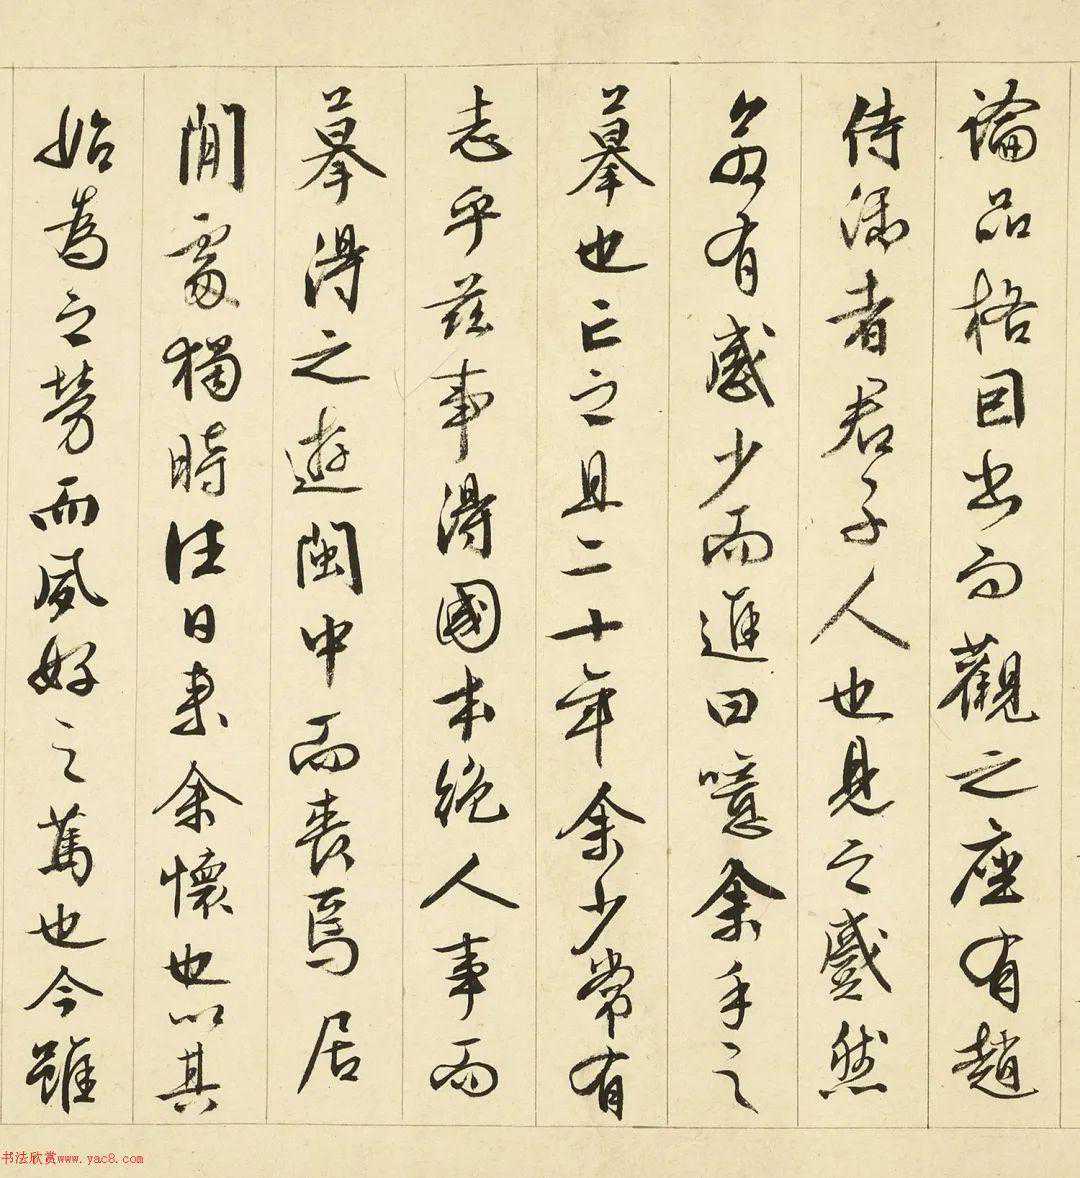 論品格因出而觀之座有趙
侍御者君子人也見之慼然
若有感少而進曰噫余手之
摹也亡之且二十年余少常有
志乎茲事得國本絕人事而
摹得之遊閩中而喪焉居
閒處獨時往日来余懷也以其
始為之勞而夙好之篤也今雖
书法欣赏www.yac8.com